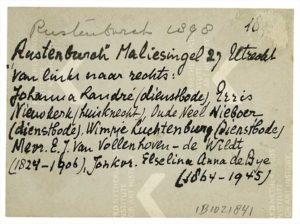 Rustenburch 1898
"Rustenburch" Maliesingel 27 Utrecht
van links naar rechts:
Johanna Randré (dienstbode), Erris
Nieuwkerk (Huisknecht), Oude Neel Nieboer
(dienstbode), Wimpje Luchtenburg (dienstbode)
Mevr. E.J. Van Vollenhoven - de Wildt
(1824-1906), Jonkvr. Elselina Anna de Bye
(1864-1945)
1B1021841